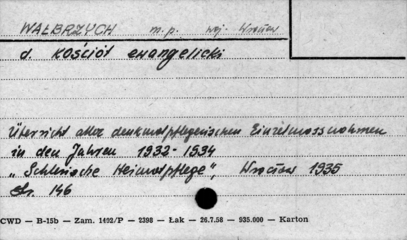 WAŁBRZYCH m.p. woj. Wrocław
d. kościół ewangelicki
Übersicht aller denkmalpflegerischen Einzelmassnahmen
in den Jahren 1932-1934
„Schlesische Heimatpflege", Wrocław 1935
str. 146
CWD — B-15b — Zam. 1492/P — 2398 — Łak — 26.7.58 — 935.000 — Karton